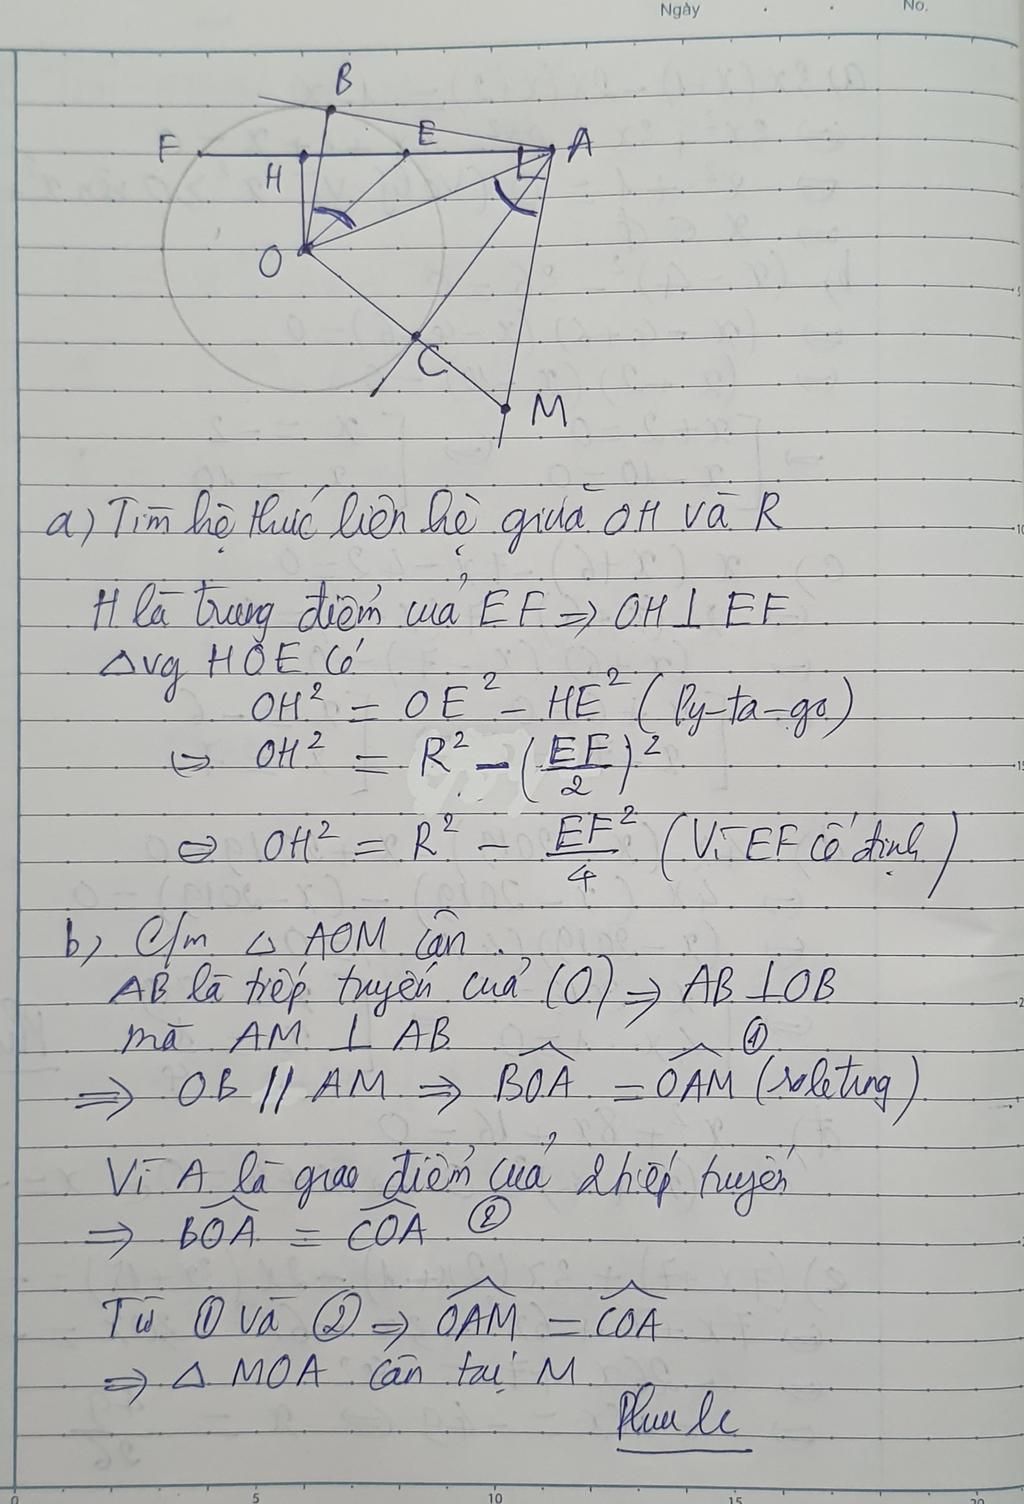 Ngày . . No.
B
F E A
H
O
C
M
a) Tìm hệ thức liên hệ giữa OH và R
H là trung điểm của EF => OH ⊥ EF
△vg HOE có
OH² = OE² - HE² (Py-ta-go)
<=> OH² = R² - (EF/2)²
<=> OH² = R² - EF²/4 (Vì EF cố định)
b) C/m △ AOM cân.
AB là tiếp tuyến của (O) => AB ⊥ OB
mà AM ⊥ AB ①
=> OB // AM => BOA = OAM (sole tung)
Vì A là giao điểm của 2 tiếp tuyến
=> BOA = COA ②
Từ ① và ② => OAM = COA
=> △ MOA cân tại M
5 10 15 20